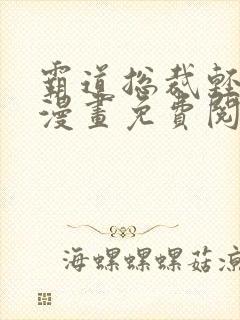 霸道总裁轻
漫畫免費閱
海螺螺螺菇凉